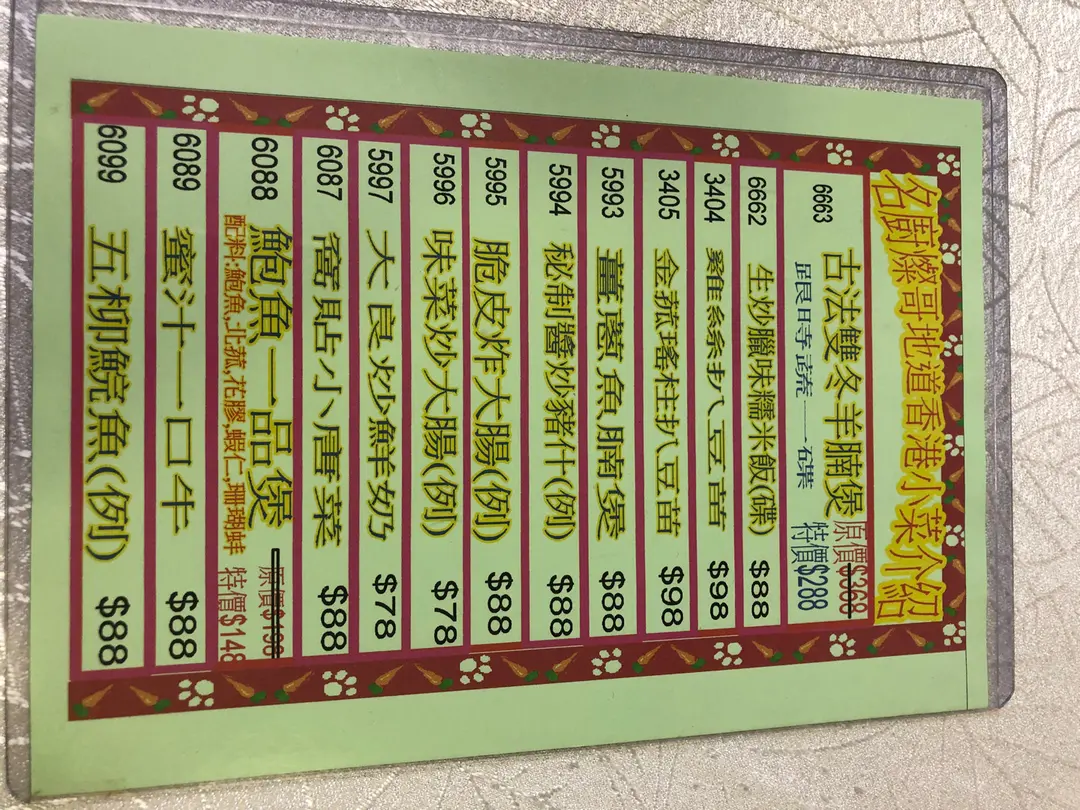 名廚燦哥地道香港小菜介紹
6663 古法雙冬羊腩煲 原價$368
跟時蔬一碟 特價$288
6662 生炒臘味糯米飯(碟) $88
3404 雞絲扒豆苗 $98
3405 金菰瑤柱扒豆苗 $98
5993 薑蔥魚腩煲 $88
5994 秘制醬炒豬什(例) $88
5995 脆皮炸大腸(例) $88
5996 味菜炒大腸(例) $78
5997 大良炒鮮奶 $78
6087 窩貼小唐菜 $88
6088 鮑魚一品煲 原價$198
配料:鮑魚,北菰,花膠,蝦仁,珊瑚蚌 特價$148
6089 蜜汁一口牛 $88
6099 五柳鯇魚(例) $88